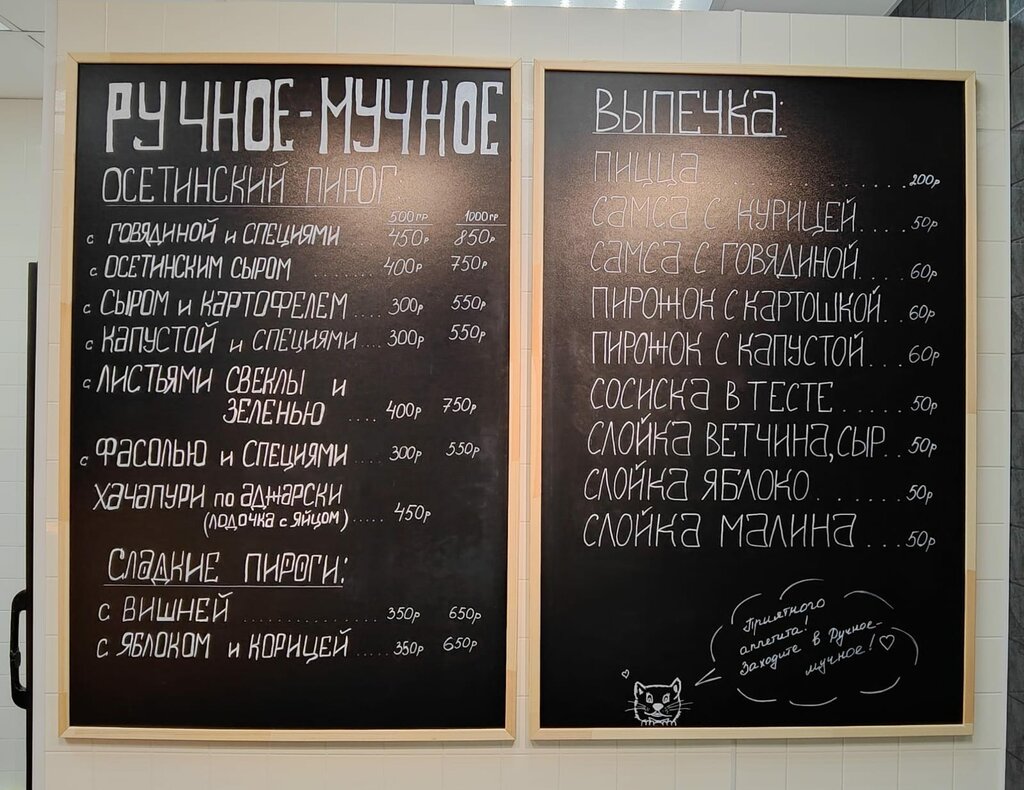 РУЧНОЕ-МУЧНОЕ
ОСЕТИНСКИЙ ПИРОГ
500гр 1000гр
с ГОВЯДИНОЙ и СПЕЦИЯМИ 450р 850р
с ОСЕТИНСКИМ СЫРОМ ........ 400р 750р
с СЫРОМ и КАРТОФЕЛЕМ .... 300р 550р
с КАПУСТОЙ и СПЕЦИЯМИ .... 300р 550р
с ЛИСТЬЯМИ СВЕКЛЫ и
ЗЕЛЕНЬЮ .... 400р 750р
с ФАСОЛЬЮ и СПЕЦИЯМИ .... 300р 550р
ХАЧАПУРИ по АДЖАРСКИ
(лодочка с яйцом) ..... 450р
СЛАДКИЕ ПИРОГИ:
с ВИШНЕЙ .................. 350р 650р
с ЯБЛОКОМ и КОРИЦЕЙ ..... 350р 650р
ВЫПЕЧКА:
ПИЦЦА ............... 200р
САМСА С КУРИЦЕЙ.... 50р
САМСА С ГОВЯДИНОЙ.... 60р
ПИРОЖОК С КАРТОШКОЙ.. 60р
ПИРОЖОК С КАПУСТОЙ... 60р
СОСИСКА В ТЕСТЕ ...... 50р
СЛОЙКА ВЕТЧИНА,СЫР.. 50р
СЛОЙКА ЯБЛОКО ....... 50р
СЛОЙКА МАЛИНА ....50р
Приятного
аппетита!
Заходите в Ручное-
мучное! ♡